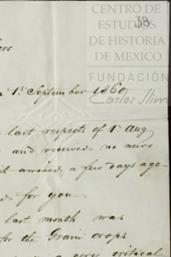 CENTRO DE
ESTUDIOS
DE HISTORIA
DE MEXICO
38
FUNDACIÓN
Carlos Slim
1st September 1860
last respects of 1st Aug
and received no
arrived a few days ago
for you
last month was
for the Grain crops
a very critical